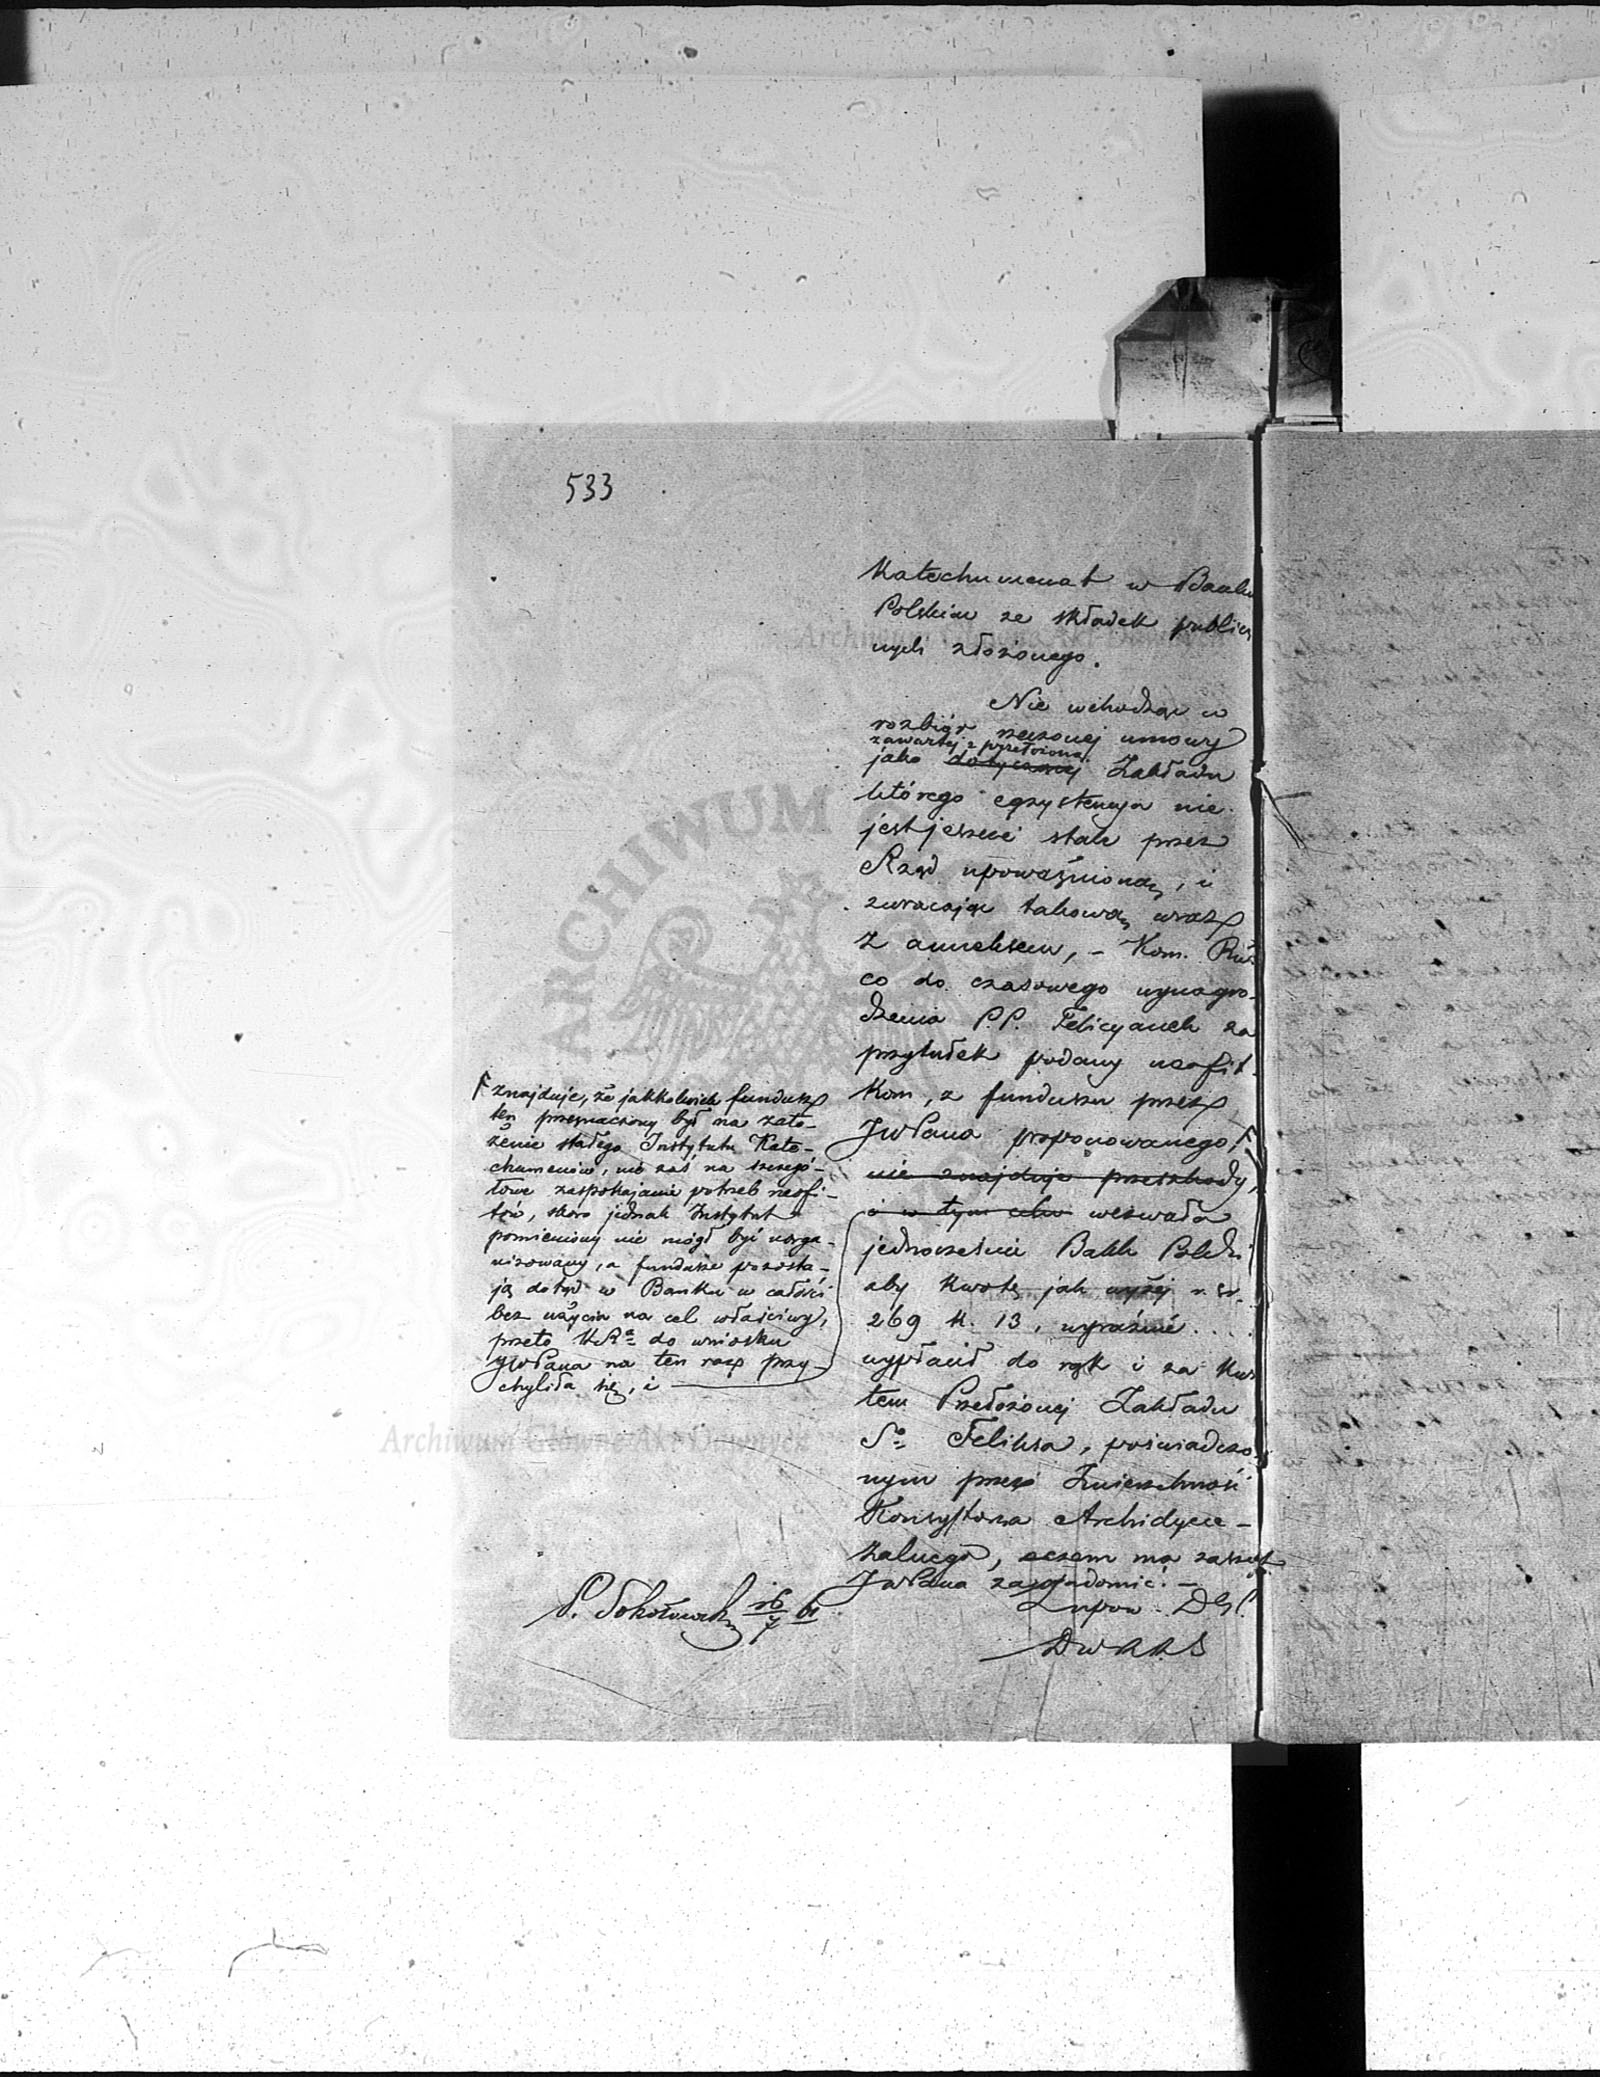 533
Katechumenat w Banku
Polskim ze składek publicz
nych złożonego.
Nie wchodząc w
rozbiór rzeczonej umowy
zawartej z przełożoną
jako dotyczącej Zakładu
którego egzystencya nie
jest jeszcze stale przez
Rząd upoważnioną, i
zwracając takową wraz
z anneksem, - Kom. Rząd
co do czasowego wynagro-
dzenia P.P. Felicyanek za
przytułek podany neofit
kom, z funduszu przez
JWPana proponowanego,
nie znajduje przeszkody,
i w tym celu wezwała
jednocześnie Bank Polski
aby kwotę jak wyżej r. sr.
269 k. 13, wyraźnie....
wypłacił do rąk i za kwi
tem Przełożonej Zakładu
Sgo Feliksa, poświadczo
nym przez Zwierzchność
Konsystorza Archidyece-
zalnego, oczem ma zaszczyt
JWPana zawiadomić. -
Z upow. DG.
znajduje, że jakkolwiek fundusz
ten przeznaczony był na zało-
żenie stałego Instytutu Kate-
chumenów, nie zaś na szczegó-
łowe zaspokajanie potrzeb neofi-
tów, skoro jednak Instytut
pomieniony nie mógł być uorga-
nizowany, a fundusze pozosta-
ją dotąd w Banku w całości
bez użycia na cel właściwy,
przeto KRa do wniosku
JWPana na ten raz przy-
chyliła się, i
P. Sokołowski 16/7 61
Archiwum Główne Akt Dawnych
ARCHIWUM